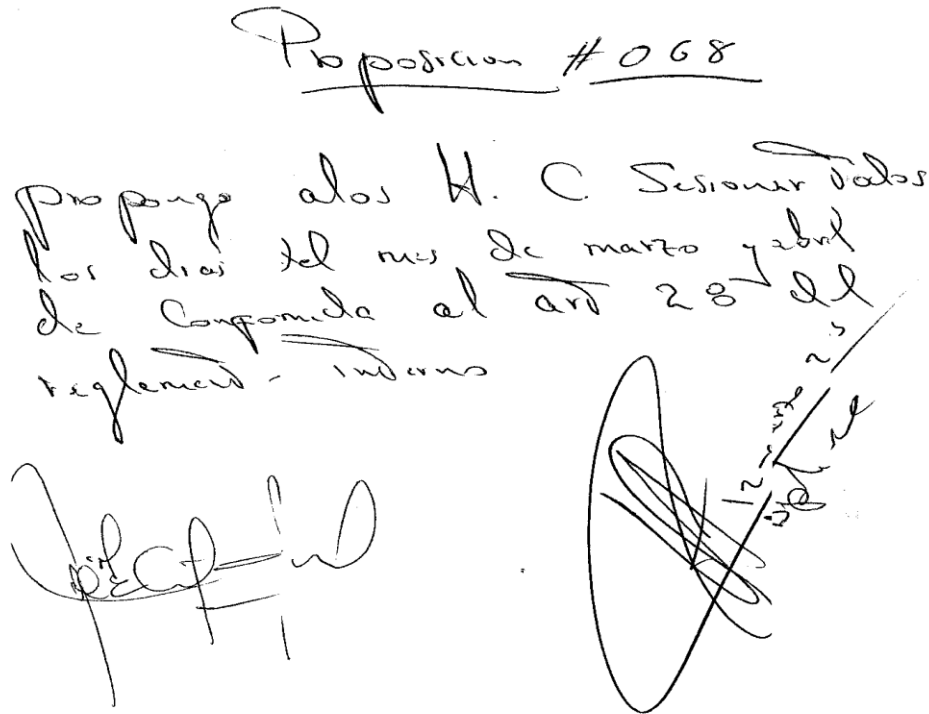 Proposicion # 068
propongo alos H. C. Sesionar Todos
los dias del mes de marzo y abril
de Conformida al art 28 del
reglamento interno